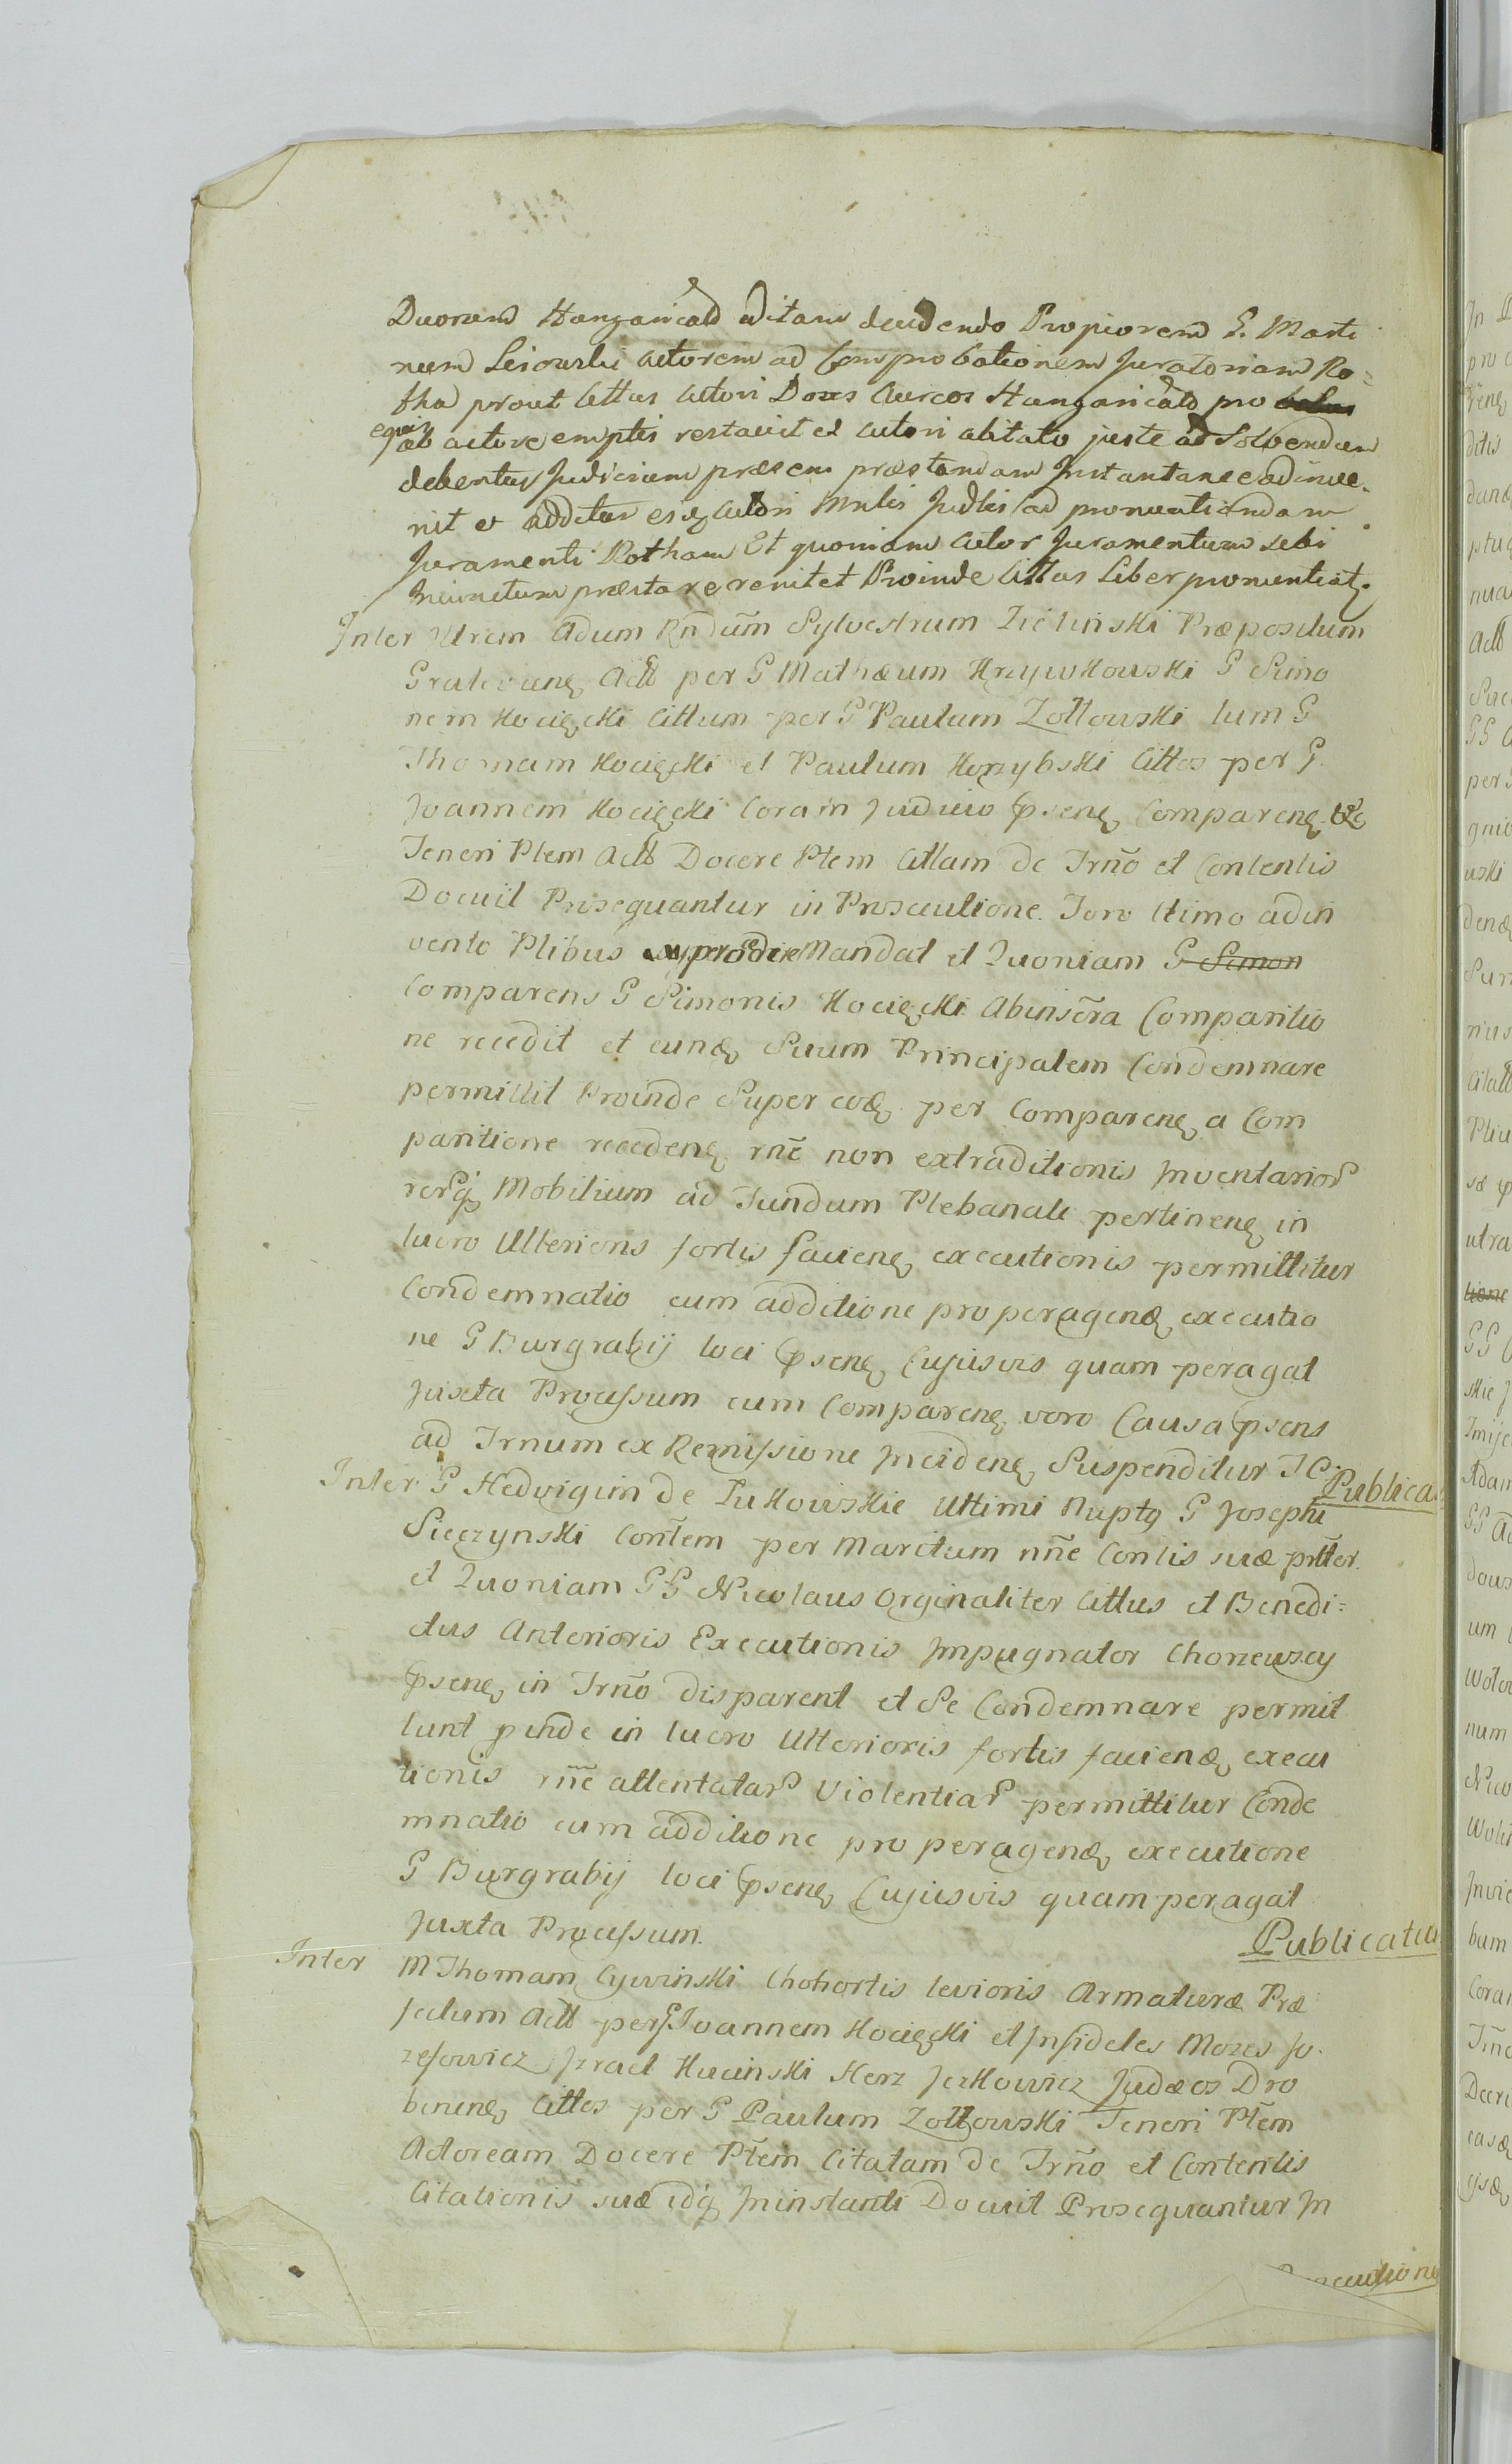 Duorum Hungarical aditam decidendo Propiorem G. Marti
num Lesowski Actorem ad Comprobationem Juratoriam Ro=
tha prout Cittus Actori Duos Aureos Hungaricales pro
equis ab actore emptis restavit et Actori citato juste ad Solvendum
debentur Judicium præsens præstandam Instantanee adinve-
nit et additur eidem Actori Mnlis Judlis ad pronuntiandam
Juramenti Rotham Et quoniam Actor Juramentum sibi
Iniunctum præstare renitet Proinde Cittus Liber pronuntiat.
Inter Vtrem Adum Rndum Sylvestrum Zielinski Præpositum
Gralevienę Actt per G Mathæum Krzywkowski G Simo
nem Kocięcki Cittum per G Paulum Zołtowski tum G
Thomam Kocięcki et Paulum Korzybski Cittos per G.
Joannem Kocięcki Coram Judicio psenę Comparenę &c
Teneri Ptem Actt Docere Ptem Cittam de Trño et Contentis
Docuit Prosequantur in Prosecutione. Foro Ltimo adin
vento Ptibus procedere Mandat et Quoniam G Simon
Comparens G Simonis Kocięcki Abinscra Comparitio
ne recedit et eund Suum Principalem Condemnare
permittit Proinde Super eod per Comparenę a Com
paritione recedenę rñe non extraditionis Inventarior
rerq Mobilium ad Fundum Plebanale pertinenę in
lucro Ulterioris fortis facienę executionis permittitur
Condemnatio cum additione pro peragenda executio
ne G Burgrabij loci psenę Cujusvis quam peragat
Juxta Processum cum Comparenę vero Causa psens
ad Trnum ex Remissione Incidenę Suspenditur TC. Publica
Inter G Hedvigim de Zukowskie Ultimi Nuptę G Josephi
Sieczynski Contem per Maritum nñe Contis suæ pitter.
et Quoniam GG Nicolaus Orginaliter Cittus et Benedi=
ctus Anterioris Executionis Impugnator Chorzewscy
psenę in Trño disparent et Se Condemnare permit
tunt pinde in lucro Ulterioris fortis faciend execu
tionis rñe attentatar Violentiar permittitur Conde
mnatio cum additione pro peragend executione
G Burgrabij loci psenę Cujusvis quam peragat
Juxta Processum.
Publicatu
Inter M Thomam Cywinski Chohortis levioris Armaturæ Præ
fectum Actt per G Joannem Kocięcki et Infideles Mozes Jo.
zefowicz Jzrael Kucinski Herz Jczkowicz Judæos Dro
binenę Cittos per G Paulum Zołtowski Teneri Ptem
Actoream Docere Ptem Citatam de Trño et Contentis
Citationis suæ idq Ininstanti Docuit Prosequantur In